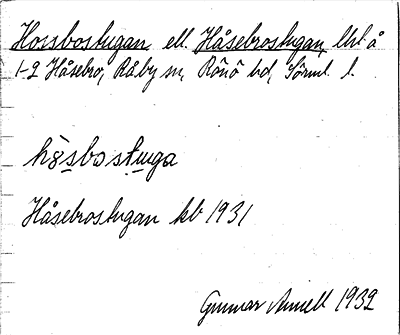 Hossbostugan ell. Håsebrostugan, lht å
1-2 Håsebro, Råby sn, Rönö hd, Sörml. l.
hòsbostuga
Håsebrostugan kb 1931
Gunnar 1932